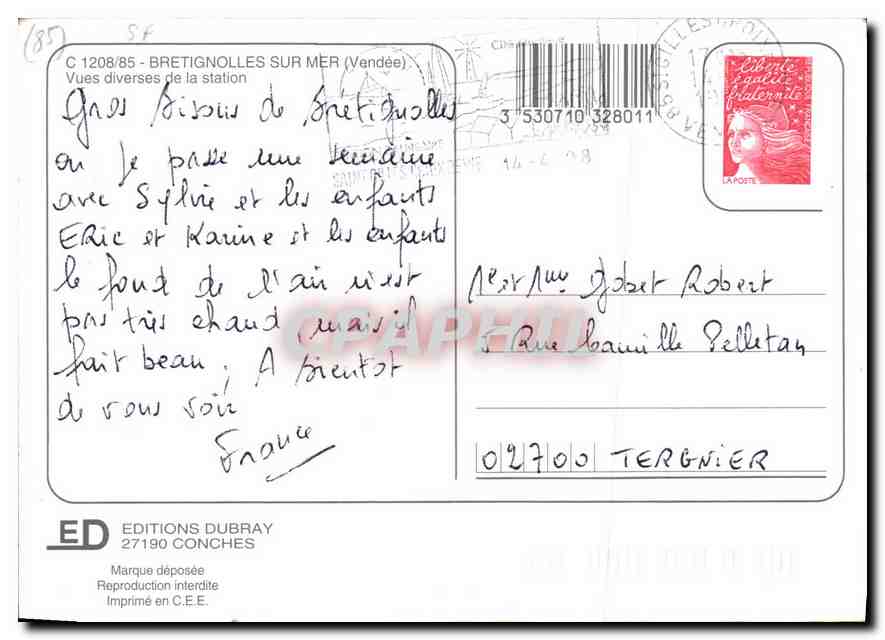 (85)
SF
C 1208/85 - BRETIGNOLLES SUR MER (Vendée)
Vues diverses de la station
3 530710 328011
14-4-98
liberté
égalité
fraternité
LA POSTE
Gros Bisous de Brétignolles
ou je passe une semaine
avec Sylvie et les enfants
ERic et Karine et les enfants
le fond de l'air n'est
pas très chaud, mais il
fait beau, A Bientot
de vous voir
France
Mr et Mme Gobet Robert
5 Rue Camille Pelletan
02700 TERGNIER
CPAPHIL
ED
EDITIONS DUBRAY
27190 CONCHES
Marque déposée
Reproduction interdite
Imprimé en C.E.E.